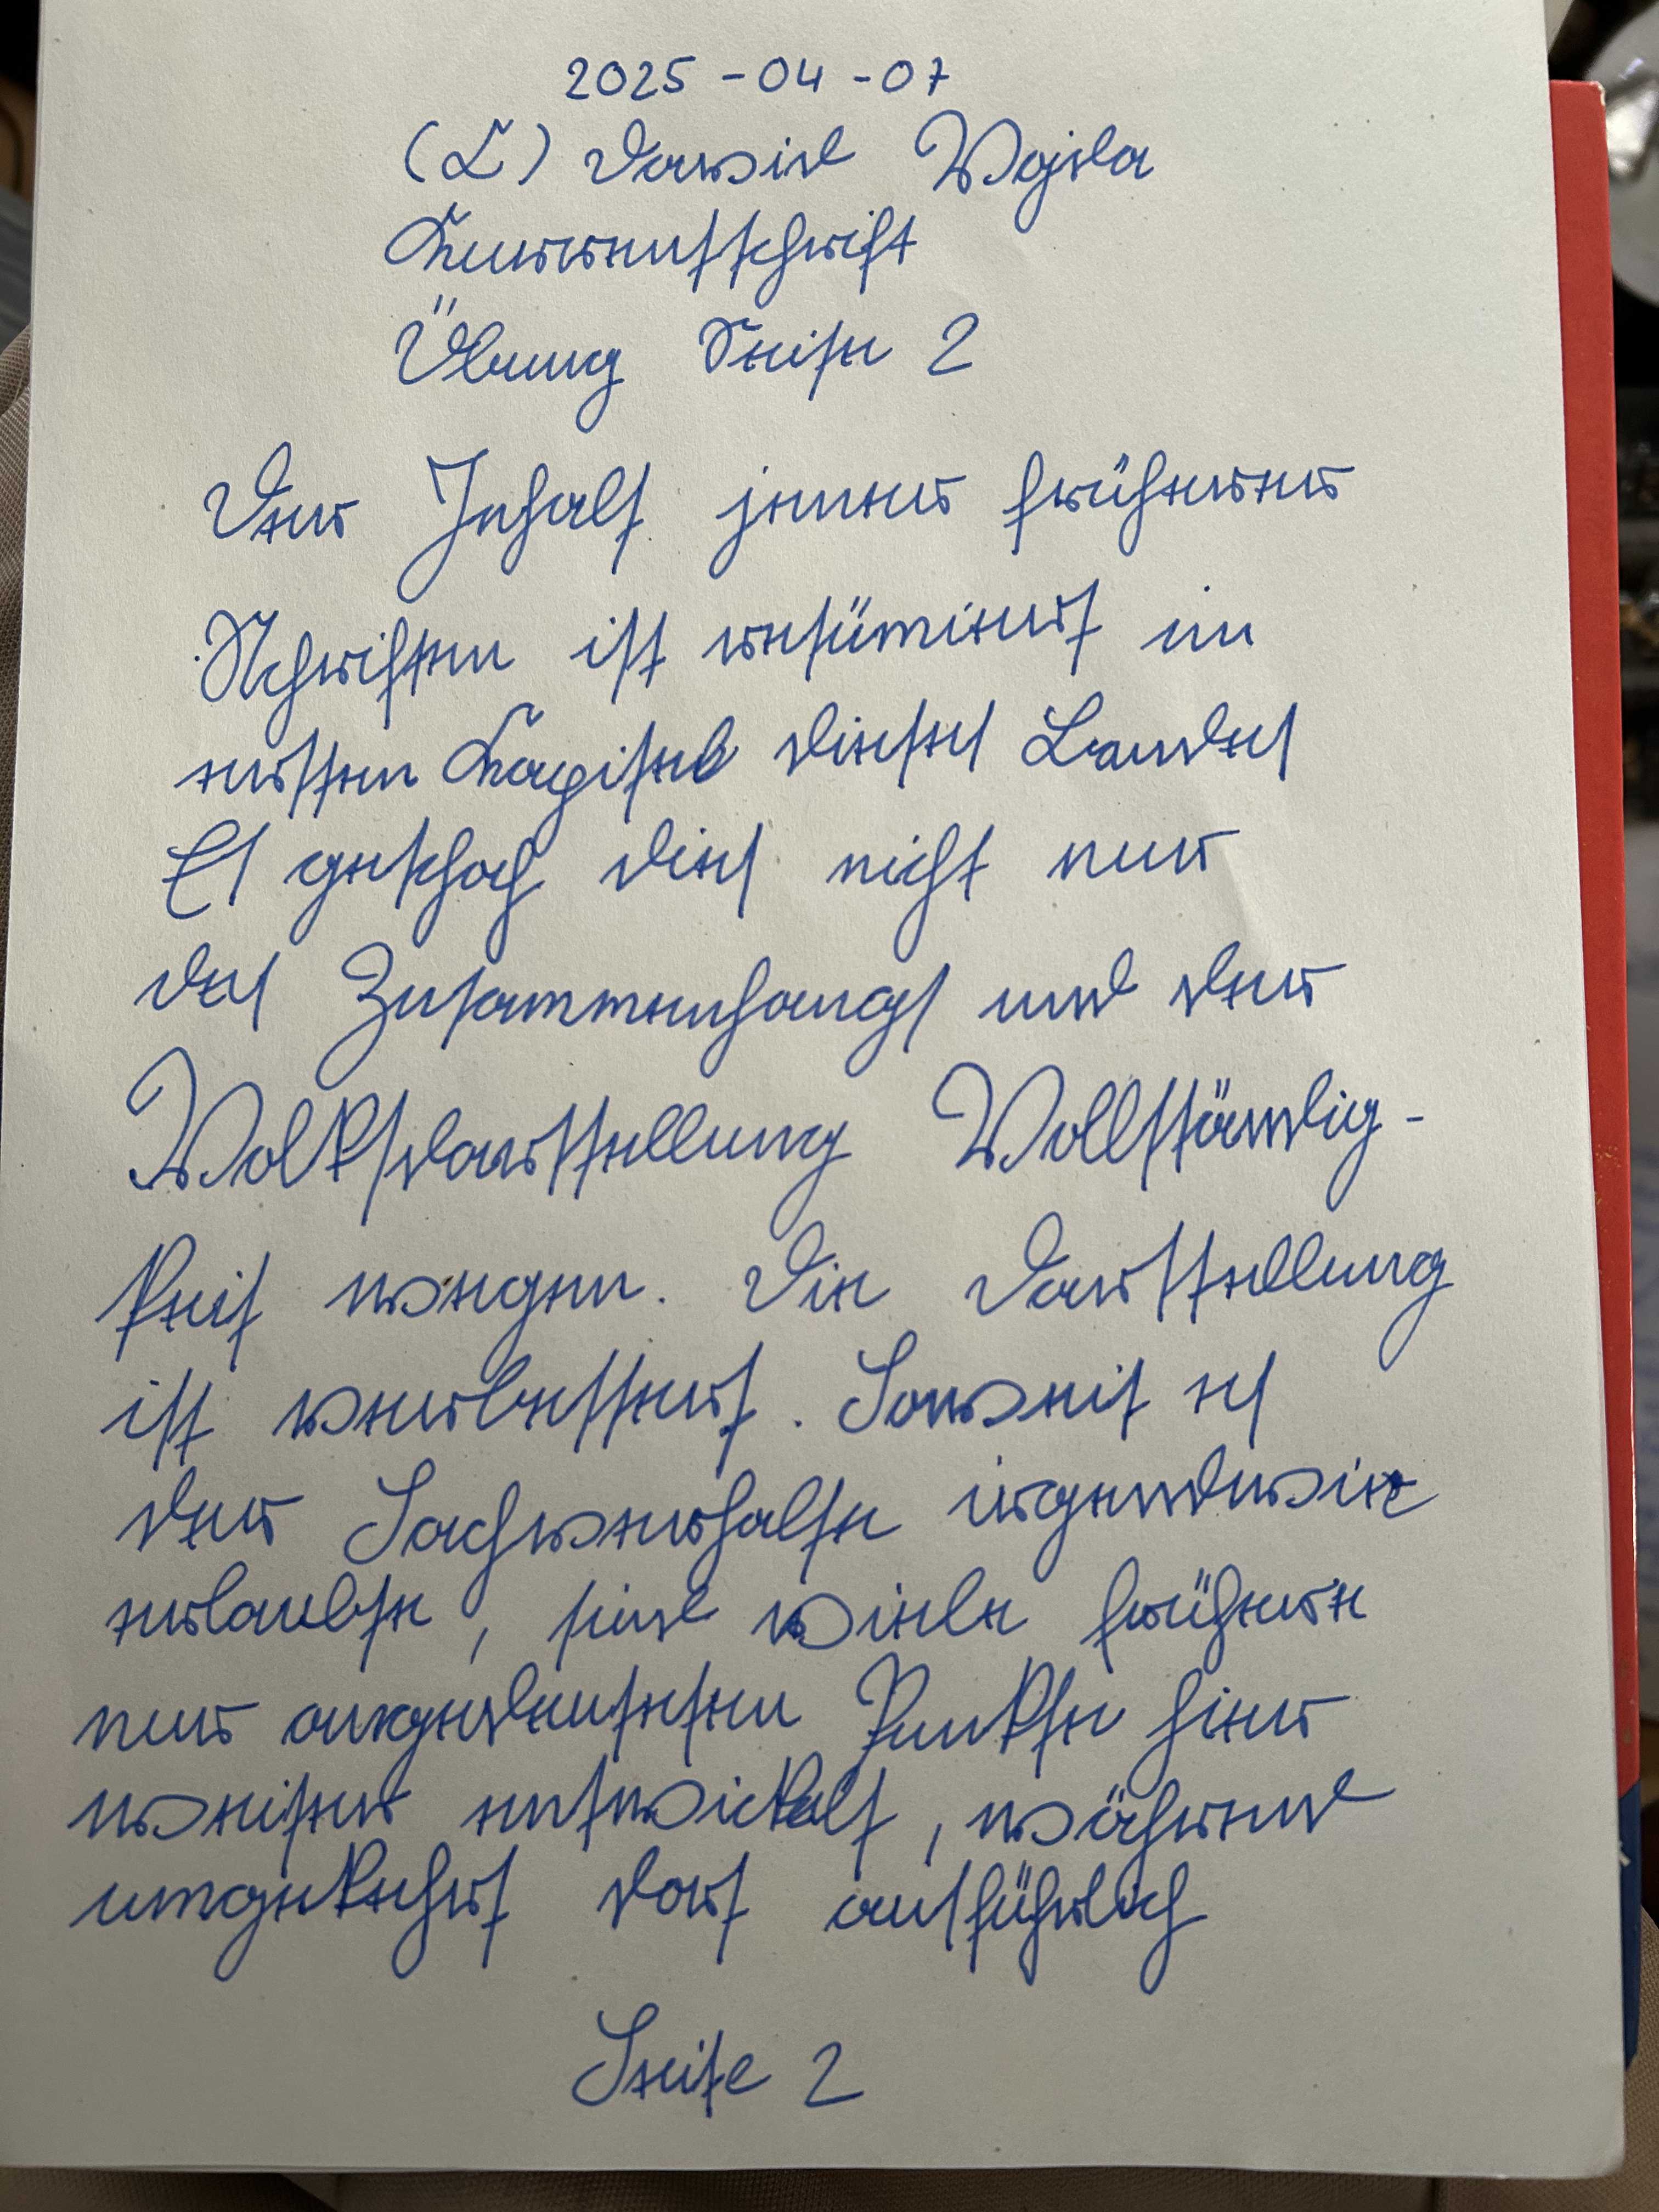 2025-04-07
(L) Dawid Wojda
Kurrentschrift
Übung Seite 2
Der Inhalt jener früherer
Schriften ist resümiert im
ersten Kapitel dieses Landes
Es geschah dies nicht nur
des Zusammenhangs und der
Volksdarstellung Vollständig-
keit wegen. Die Darstellung
ist verbessert. Soweit es
der Sachverhalte irgendwie
erlaubte, sind viele frühere
nur angedeuteten Punkte hier
weiter entwickelt, während
umgekehrt dort ausführlich
Seite 2